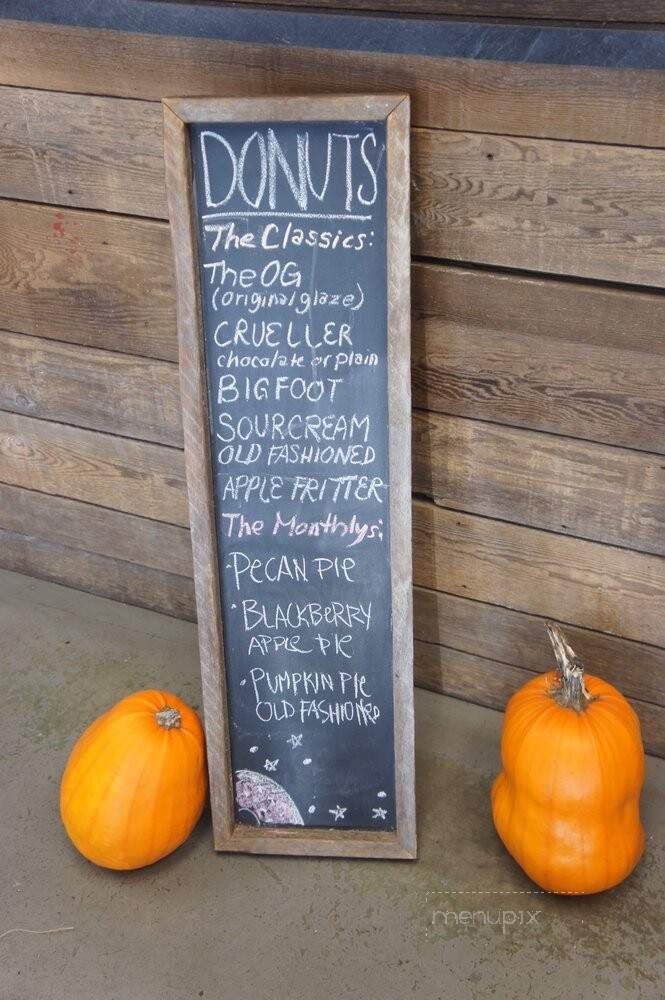 DONUTS
The Classics:
The OG
(original glaze)
CRUELLER
chocolate or plain
BIGFOOT
SOURCREAM
OLD FASHIONED
APPLE FRITTER
The Monthlys:
·PECAN PIE
·BLACKBERRY
APPLE PIE
·PUMPKIN PIE
OLD FASHIONED
menupix